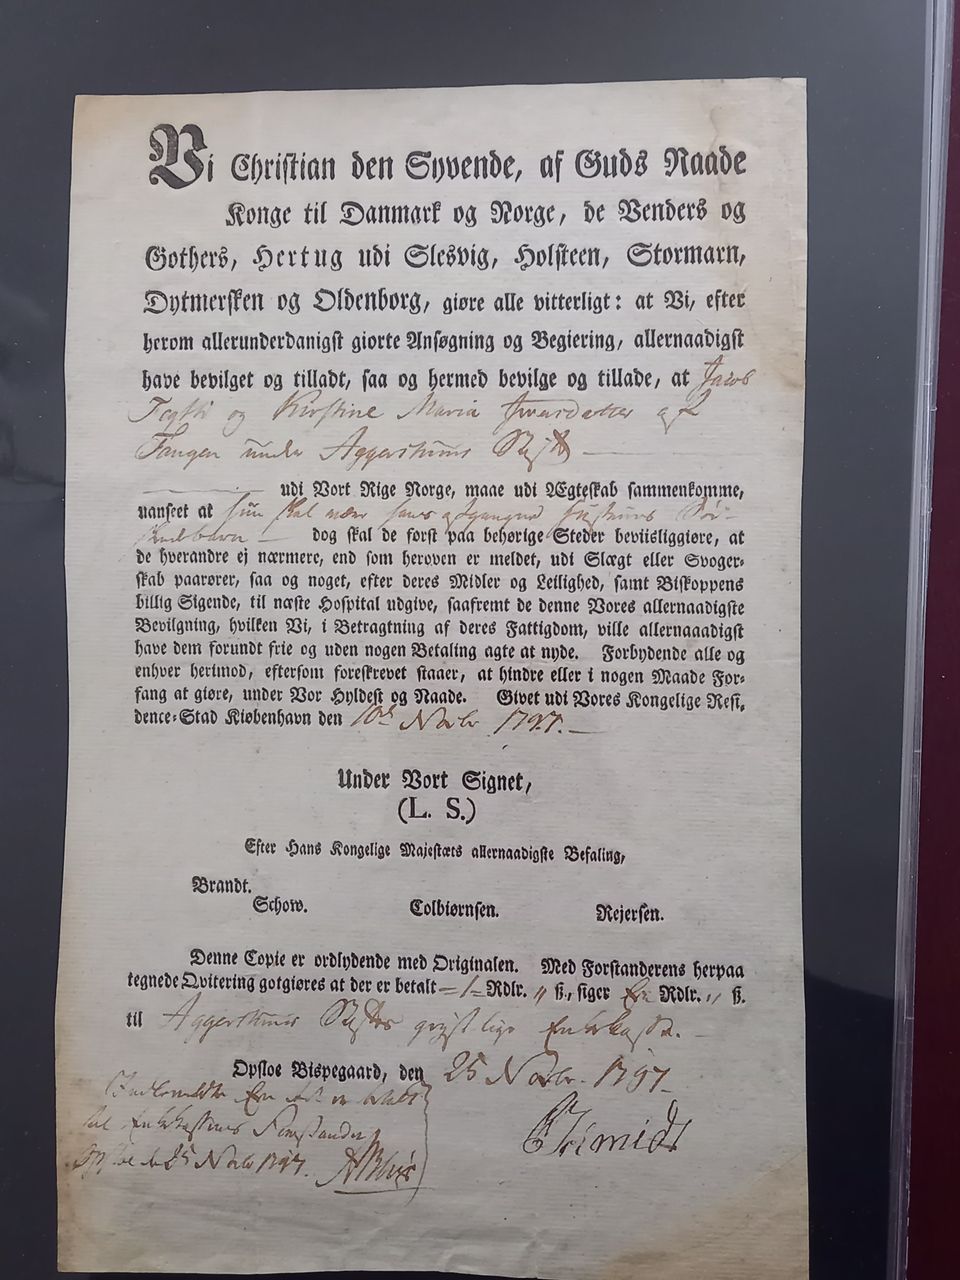 Vi Christian den Syvende, af Guds Naade
Konge til Danmark og Norge, de Venders og
Gothers, Hertug udi Slesvig, Holsteen, Stormarn,
Dytmersken og Oldenborg, giøre alle vitterligt: at Vi, efter
herom allerunderdanigst giorte Ansøgning og Begiering, allernaadigst
have bevilget og tilladt, saa og hermed bevilge og tillade, at Jacob
og Kirstine Maria af
Fangen under Aggershuus Stift
udi Vort Rige Norge, maae udi Ægteskab sammenkomme,
uanseet at hun skal være hans afgangne Hustrues
dog skal de først paa behørige Steder beviisliggiøre, at
de hverandre ej nærmere, end som heroven er meldet, udi Slægt eller Svoger-
skab paarører, saa og noget, efter deres Midler og Leilighed, samt Biskoppens
billig Sigende, til næste Hospital udgive, saafremt de denne Vores allernaadigste
Bevilgning, hvilken Vi, i Betragtning af deres Fattigdom, ville allernaaadigst
have dem forundt frie og uden nogen Betaling agte at nyde. Forbydende alle og
enhver herimod, eftersom foreskrevet staaer, at hindre eller i nogen Maade For-
fang at giøre, under Vor Hyldest og Naade. Givet udi Vores Kongelige Resi-
dence-Stad Kiøbenhavn den 10de Novbr. 1797.
Under Vort Signet,
(L. S.)
Efter Hans Kongelige Majestæts allernaadigste Befaling,
Brandt.
Schow. Colbiørnsen. Rejersen.
Denne Copie er ordlydende med Originalen. Med Forstanderens herpaa
tegnede Qvitering gotgiøres at der er betalt =1= Rdlr. „ ß., siger Een Rdlr. „ ß.
til Aggershuus Stifts gejstlige Enkekasse.
Opsloe Bispegaard, den 25 Novbr. 1797
Indbemeldte Een er betalt
til Enkekassens Forstander
Opsloe d. 25 Novbr 1797.